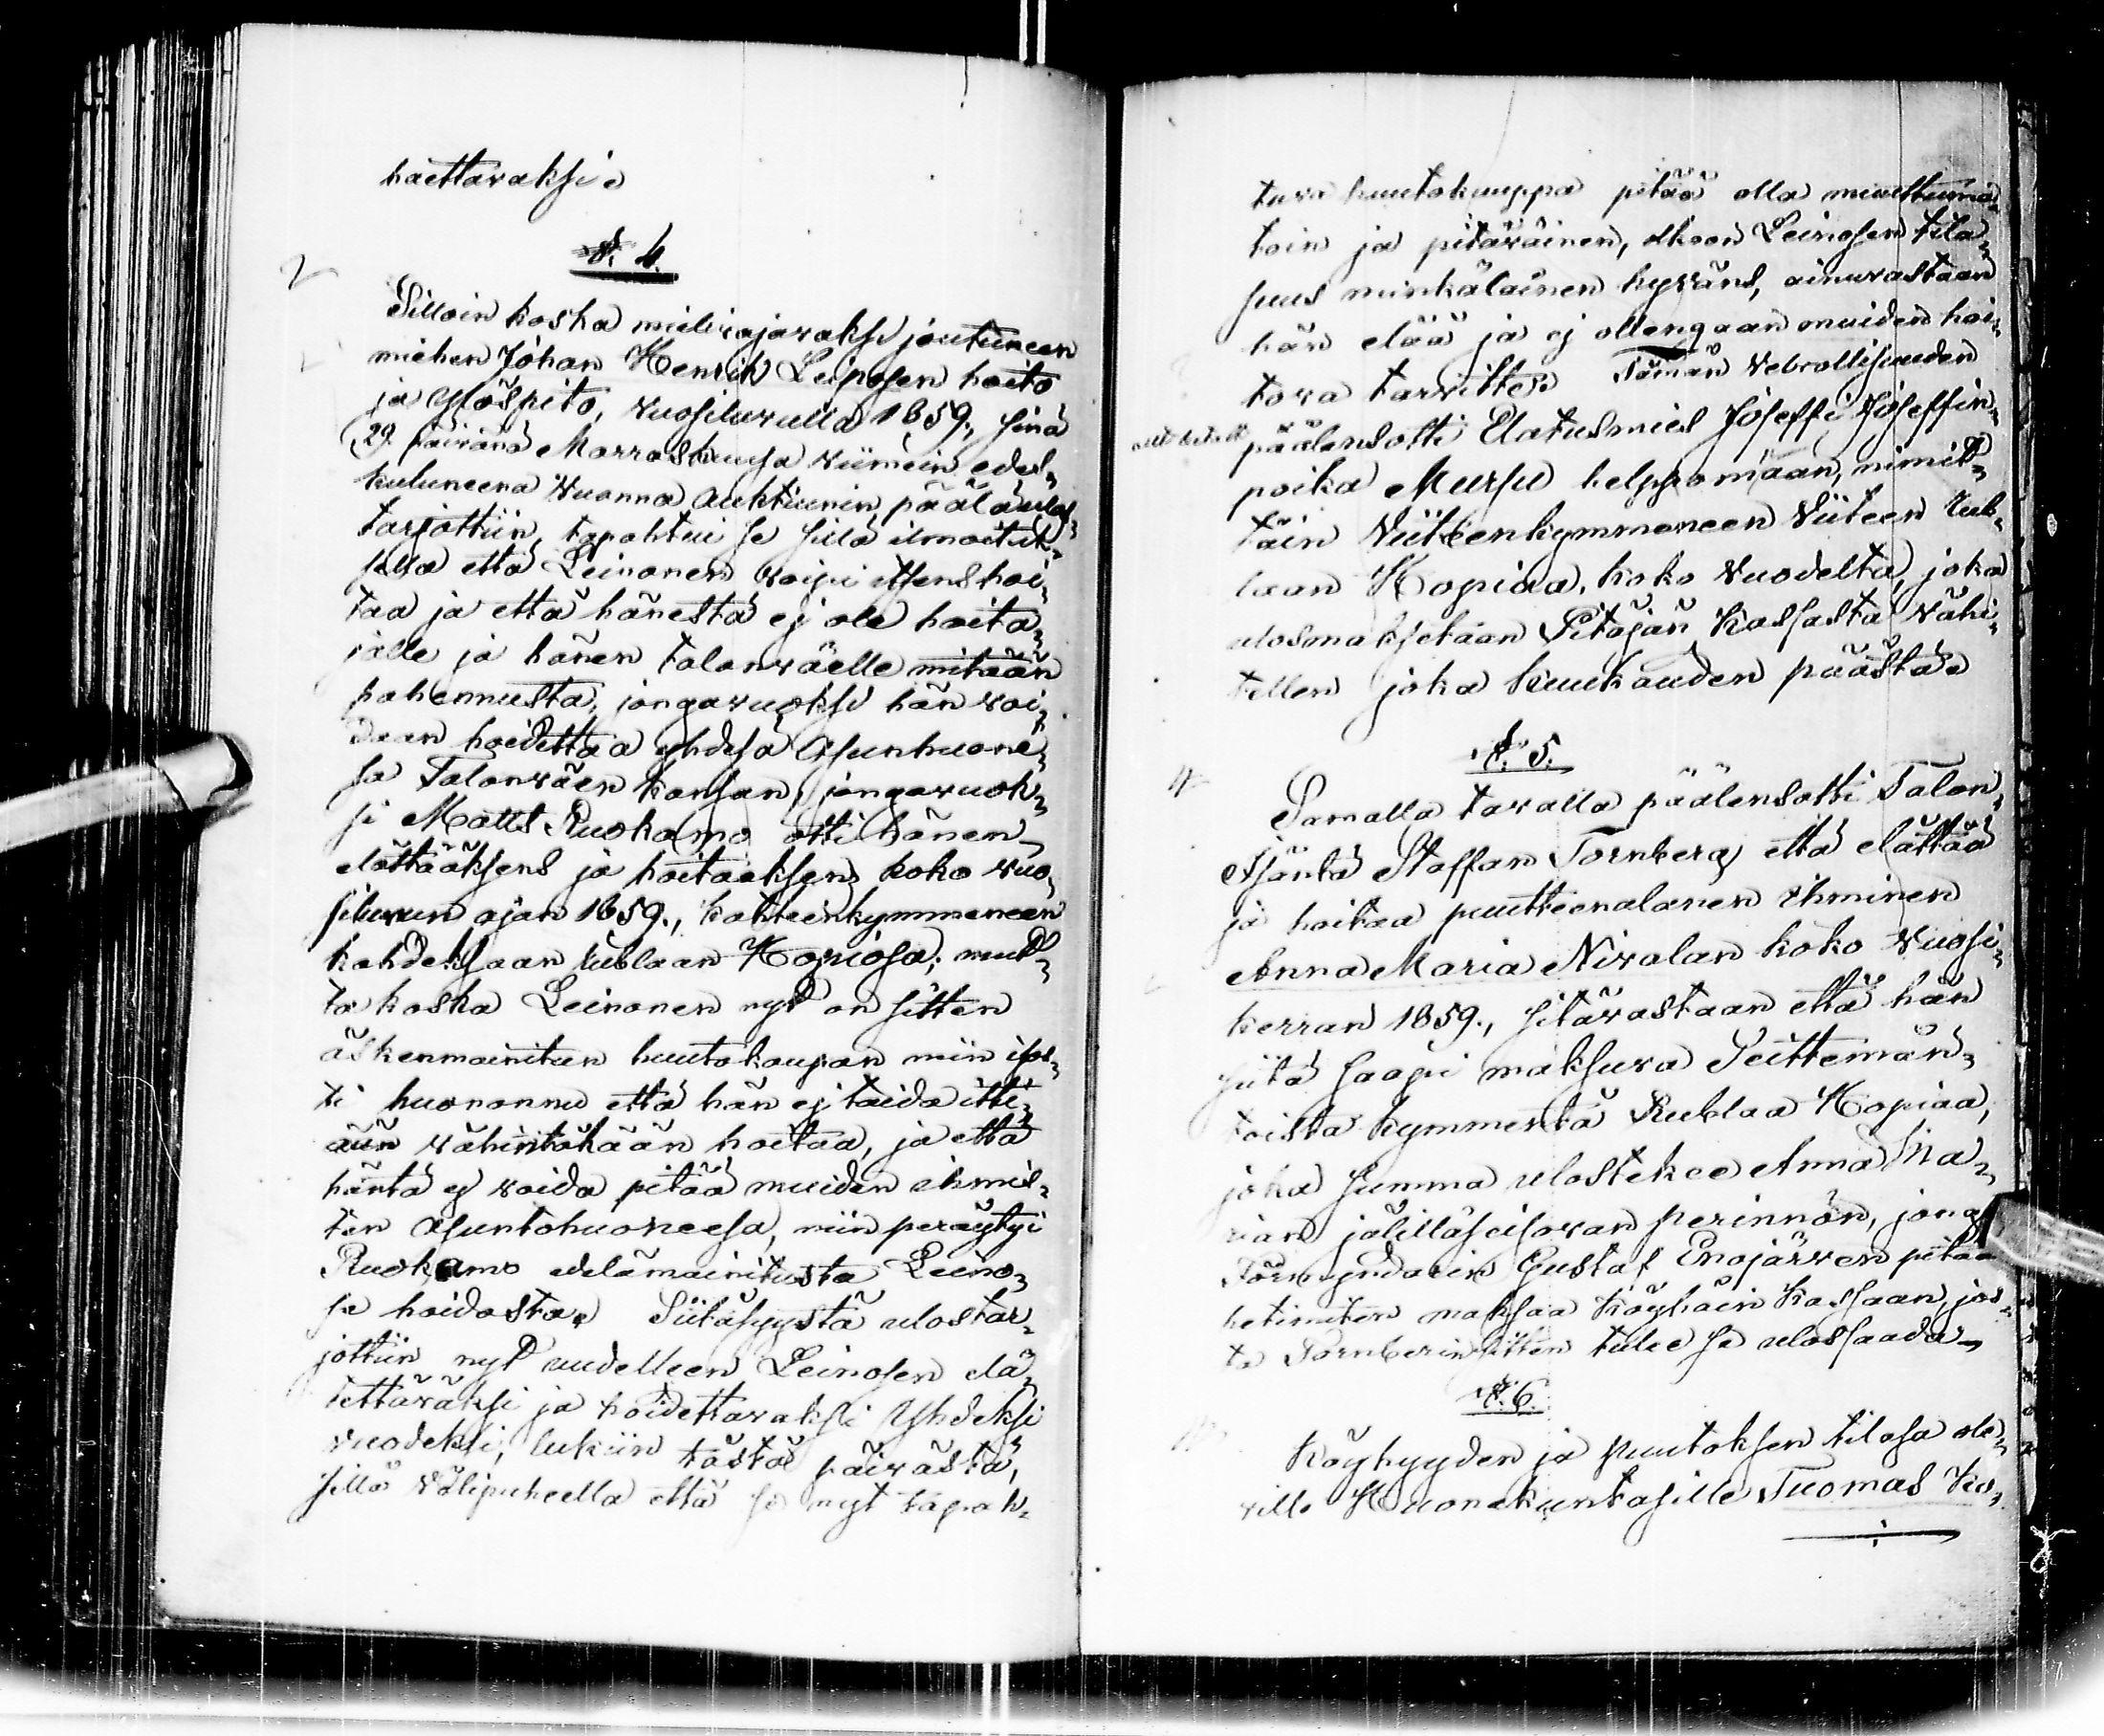 haettavaksi.
§. 4.
Silloin koska mielivajavaksi joutuneen
miehen Johan Henrik Leinosen hoito
ja ylöspito, vuosiluvulla 1859, sinä
29. päivänä Marraskuusa viimein edes-
kuluneena vuonna auktiunin päälä ulos-
tarjottiin, tapahtui se sillä ilmoituk-
sella että Leinonen voipi ittens hoi-
taa ja että hänestä ej ole hoita-
jalle ja hänen talonväelle mitään
pahennusta, jongavuoksi hän voi-
daan hoidettaa yhdesä asunhuone-
sa Talonväen kansan, jongavuok-
si Matts Ruokamo otti hänen
elättääksens ja hoitaaksens koko vuo-
siluvun ajan 1859., kahteenkymmeneen
kahdeksaan rublaan Hopiosa; mut-
ta koska Leinonen nyt on sitten
äskenmainitun huutokaupan niin isos-
ti huononnu että hän ej taida itti-
ään vähintäkään hoitaa, ja että
häntä ej voida pitää muiden ihmis-
ten asuntohuoneesa, niin peräytyi
Ruokamo edelämainitusta Leino-
se hoidosta. Siitäsyystä ulostar-
jottiin nyt uudelleen Leinosen elä-
tettäväksi ja hoidettavaksi yhdeksi
vuodeksi, lukiin tästä päivästä,
sillä välipuheella että se nyt tapah-
tuva huutokauppa pitää olla muuttuma-
toin ja pitäväinen, olkoon Leinosen tila-
suus minkälainen hyväns, ainuvastaan
hän elää ja ej ollengaan muiden hoi-
tova tarvitte. Tämän velvollisuuden
päälensotti Elatusmies Joseffi Joseffin-
poika Mursu helppomaan, nimit-
täin Viitteenkymmeneen Viiteen Rub-
laan Hopiaa, koko vuodelta, joka
ulosmaksetaan Pitäjän Kassasta vähi-
tellen joka kuukauden päästä.
§. 5.
Samalla tavalla päälensotti Talon-
Isäntä Staffan Tornberg että elättää
ja hoitaa puutteenalanen ihminen
Anna Maria Nivalan koko vuosi-
kerran 1859., sitävastaan että hän
siitä saapi maksuva Seittemän-
toista kymmentä Rublaa Hopiaa,
joka summa ulostekee Anna Ma-
rian jälilläseisovan perinnön, jong
Förmyndarin Gustaf Enojärven pitää
hetimiten maksaa Köyhäin Kassaan, jos-
ta Tornberin sitten tulee se ulossaada.
§. 6.
Köyhyyden ja puutoksen tilasa ole-
ville Huonekuntasille Tuomas Ko-